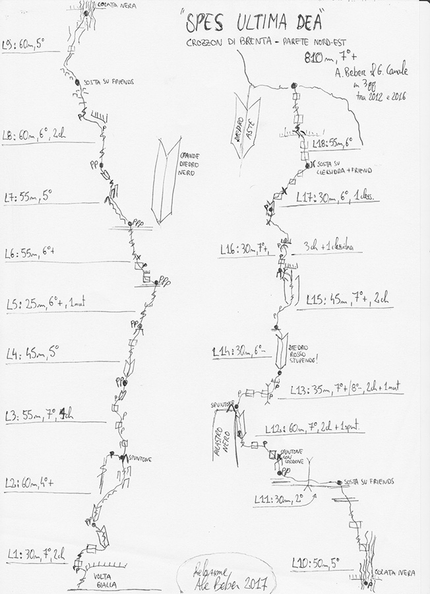 "SPES ULTIMA DEA"
CROZZON DI BRENTA - PARETE NORD-EST
810m, 7°+
A. Beber & G. Canale
in 3gg
tra 2012 e 2016
COLATA NERA
L9: 60m, 5°
SOSTA SU FRIENDS
L8: 60m, 6°, 2ch
GRANDE
DIEDRO
NERO
L7: 55m, 5°
L6: 55m, 6°+
L5: 25m, 6°+, 1nut
L4: 45m, 5°
L3: 55m, 7°, 4ch
SPUNTONE
L2: 60m, 4°+
L1: 30m, 7°, 2ch
VOLTA
GIALLA
DIEDRO
ASTE
L18: 55m, 6°
SOSTA SU
CLESSIDRA + FRIEND
L17: 30m, 6°, 1cless.
L16: 30m, 7°+,
3ch + 1clessidra
L15: 45m, 7°+, 2ch
L14: 30m, 6°-
DIEDRO
ROSSO
STUPENDO!
L13: 35m, 7°+/8°-, 2ch + 1nut
SPUNTONE
PILASTRO
NERO
L12: 60m, 7°, 2ch + 1spunt.
SPUNTONE
CON
CORDONE
SOSTA SU FRIENDS
L11: 30m, 2°
L10: 50m, 5°
COLATA NERA
Relazione
Ale Beber 2017